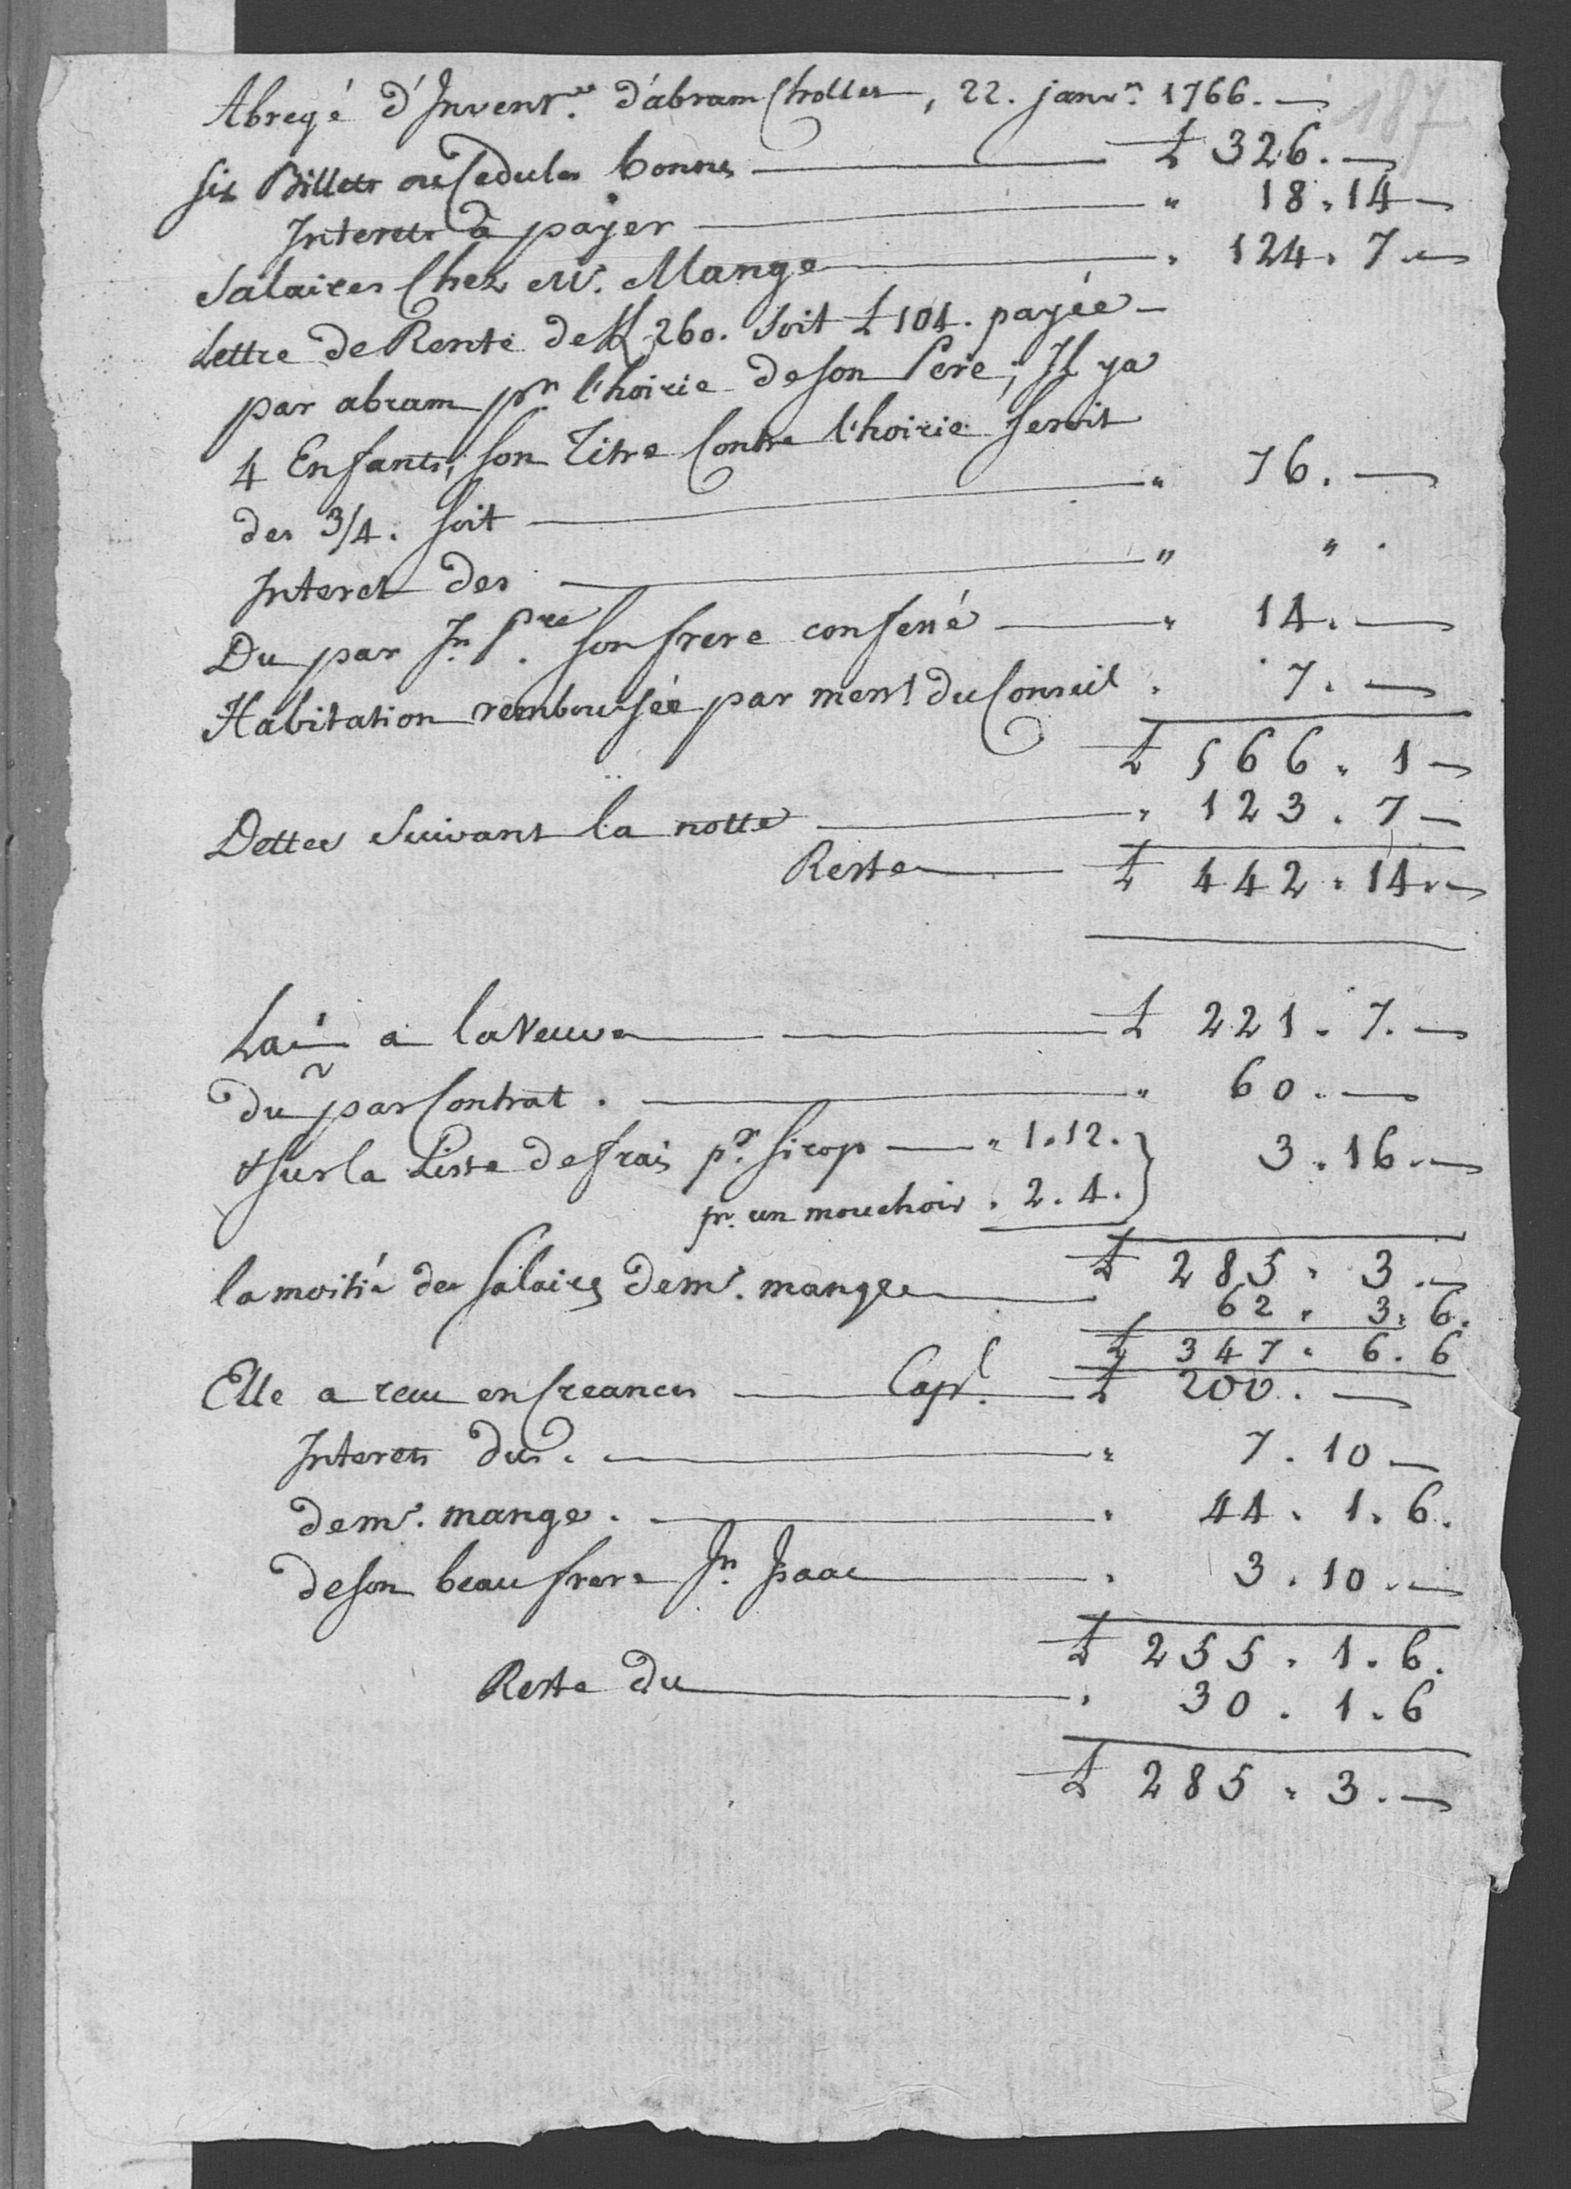 187
Abregé d'Invent.re d'abram Chollet, 22. janv.r 1766. —
six Billets ou Cedules bonnes — £ 326. —
Interets a payer — " 18. 14 —
Salaires Chez Mr. Mange — " 124. 7. —
Lettre de Rente de ff 260. soit £ 104. payée —
par abram pr. l'hoirie de son Pere; Il ya
4 Enfants, son Titre Contre l'hoirie seroit
des 3/4. soit — " 76. —
Interet des — " " .
Du par Jn. P.re son frere confessé — " 14. —
Habitation remboursée par ment. du Conseil . 7. —
£ 566. 1 —
Dettes suivant la notte — " 123. 7 —
Reste — £ 442. 14. —
La ½ a la Veuve — £ 221. 7. —
du par Contrat. — " 60. —
& sur la Liste de frais pr. sirop — " 1. 12. } 3. 16. —
pr. un mouchoir . 2. 4.
£ 285. 3. —
la moitié des salaires de mr. mange — 62. 3. 6.
£ 347. 6. 6
Elle a recu en Creances — Capl. — £ 200. —
Interets dus. — " 7. 10 —
de mr. mange. — . 44. 1. 6.
de son beau frere Jn. Isaac — . 3. 10. —
£ 255. 1. 6.
Reste du — . 30. 1. 6
£ 285. 3. —